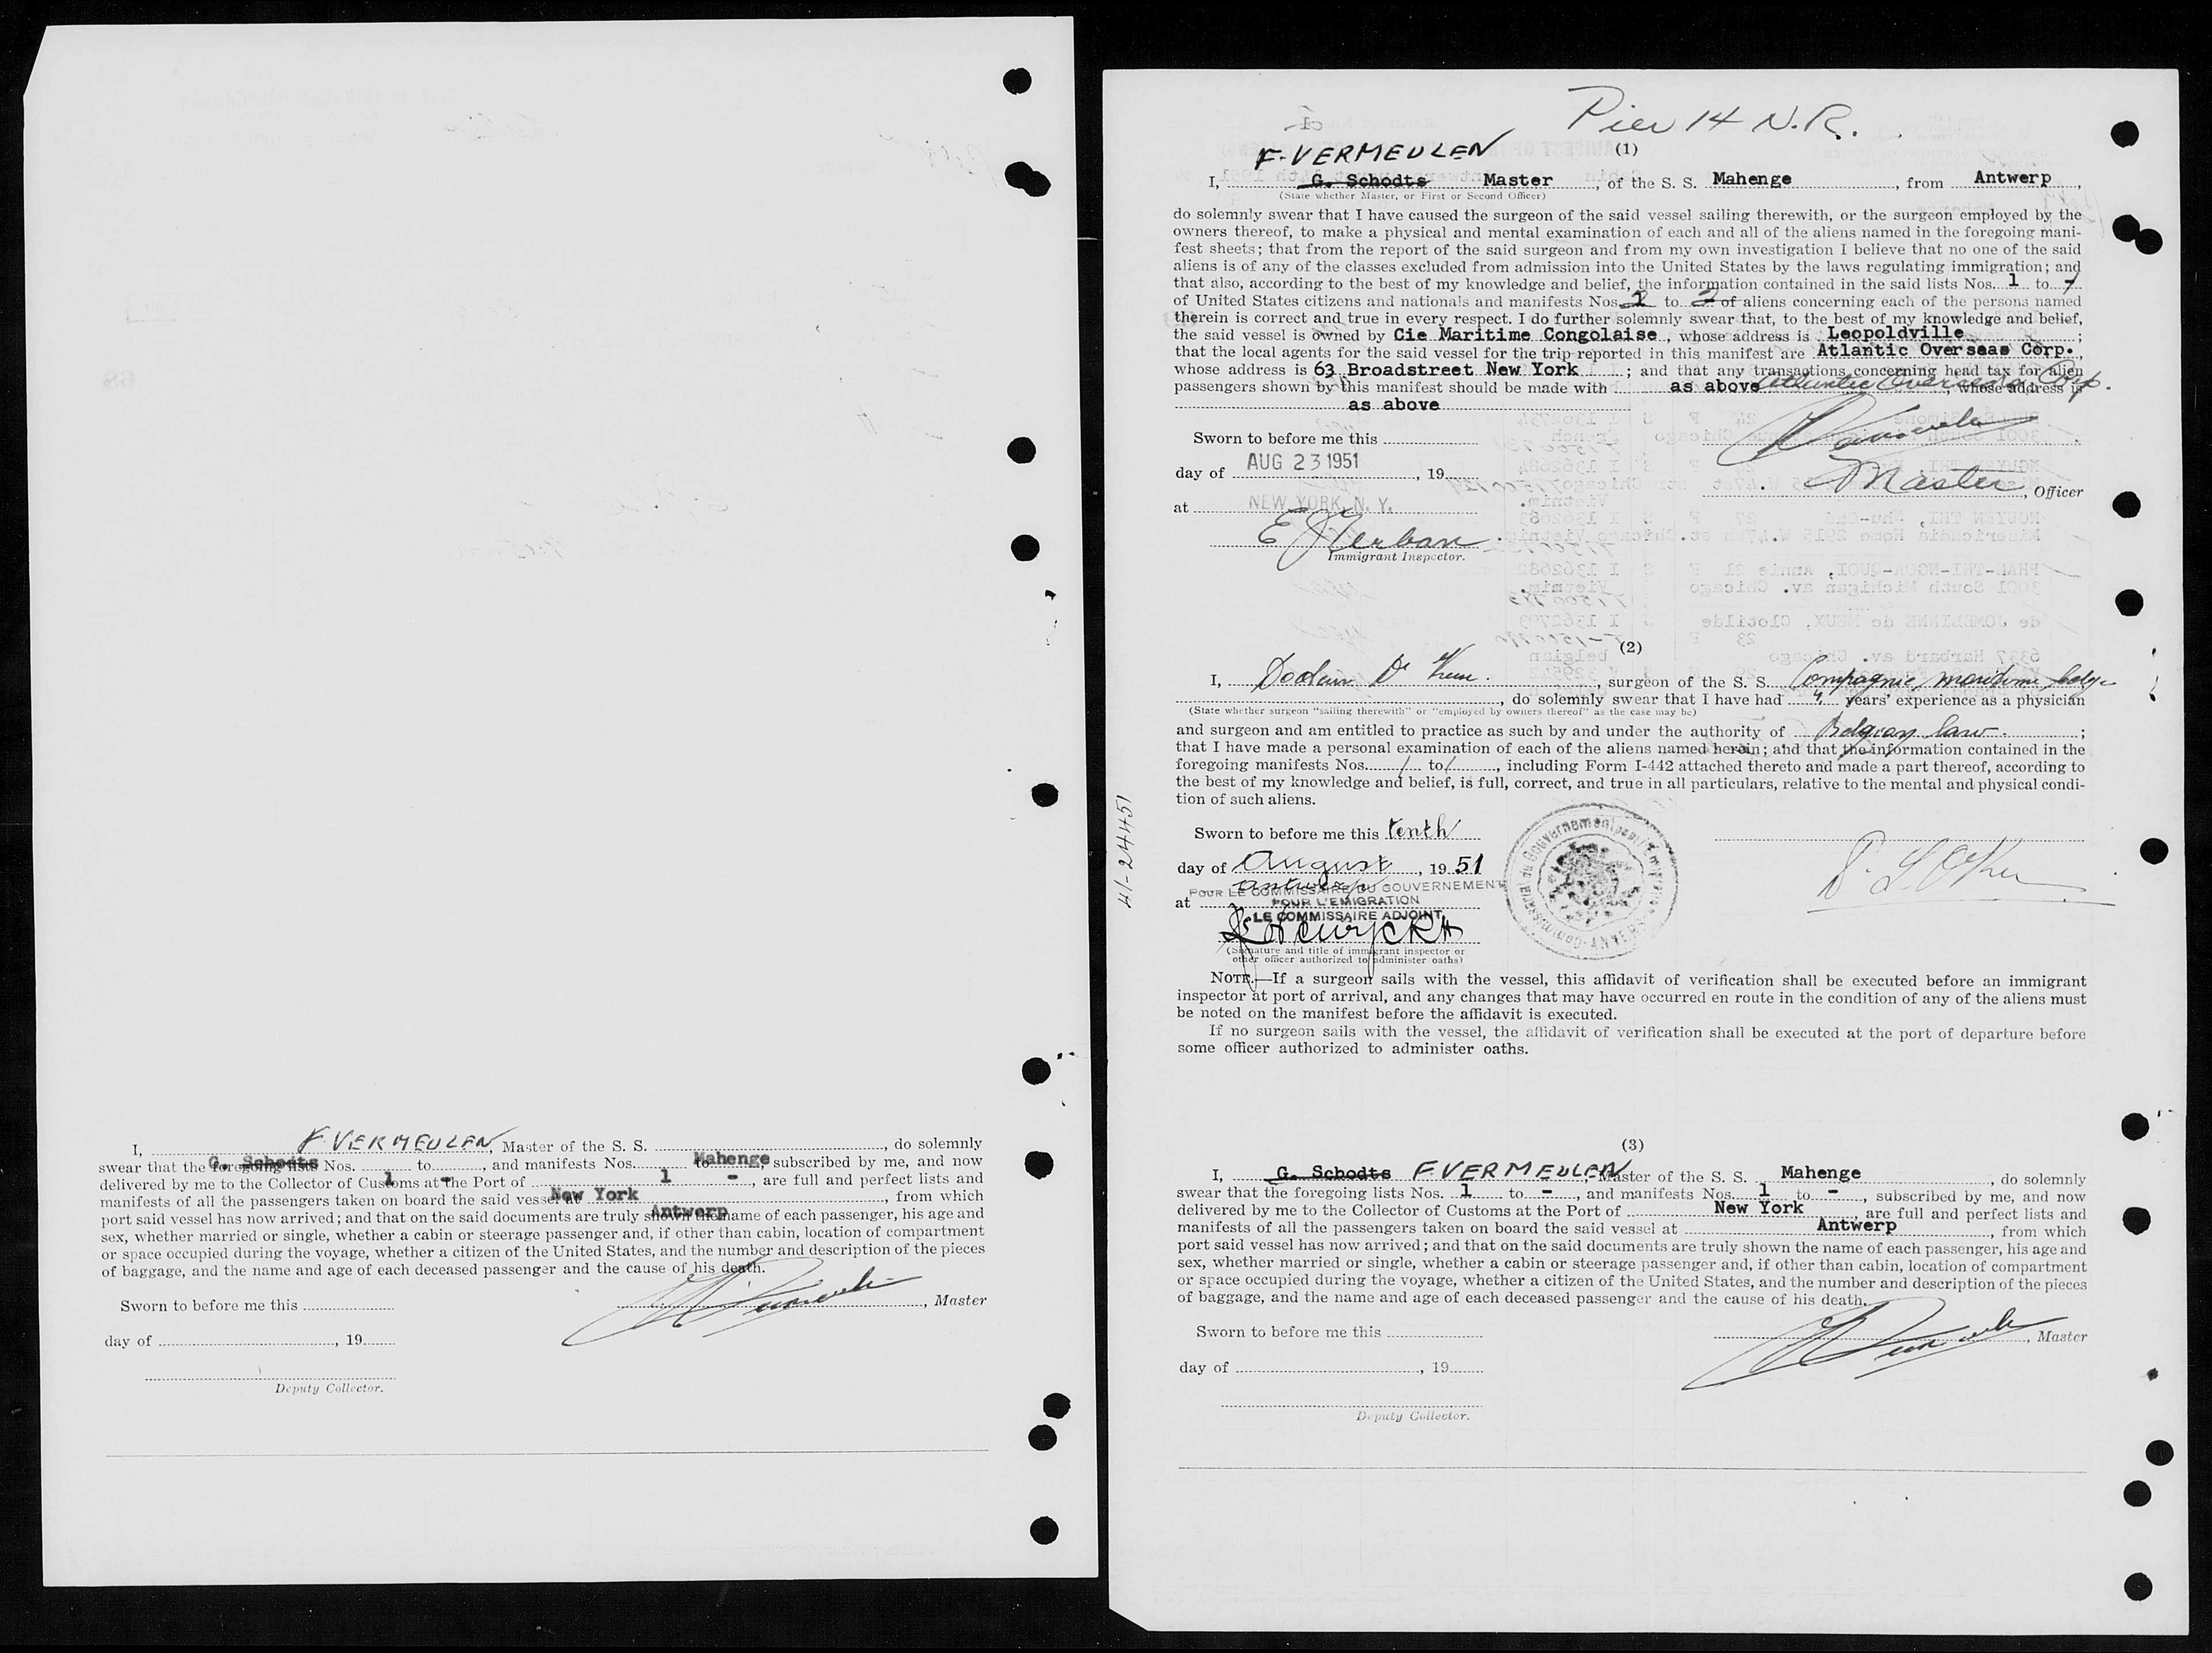 I, F. VERMEULEN, Master of the S. S. , do solemnly
swear that the foregoing lists G. Schodts Nos. to , and manifests Nos. to Mahenge, subscribed by me, and now
delivered by me to the Collector of Customs 1 at - the Port of 1 - , are full and perfect lists and
manifests of all the passengers taken on board the said vessel at New York , from which
port said vessel has now arrived; and that on the said documents are truly shown the Antwerp name of each passenger, his age and
sex, whether married or single, whether a cabin or steerage passenger and, if other than cabin, location of compartment
or space occupied during the voyage, whether a citizen of the United States, and the number and description of the pieces
of baggage, and the name and age of each deceased passenger and the cause of his death.
Sworn to before me this
, Master
day of , 19
Deputy Collector.
Pier 14 N. R.
F. VERMEULEN (1)
I, G. Schodts Master , of the S. S. Mahenge , from Antwerp ,
(State whether Master, or First or Second Officer)
do solemnly swear that I have caused the surgeon of the said vessel sailing therewith, or the surgeon employed by the
owners thereof, to make a physical and mental examination of each and all of the aliens named in the foregoing mani-
fest sheets; that from the report of the said surgeon and from my own investigation I believe that no one of the said
aliens is of any of the classes excluded from admission into the United States by the laws regulating immigration; and
that also, according to the best of my knowledge and belief, the information contained in the said lists Nos. 1 to
of United States citizens and nationals and manifests Nos. to of aliens concerning each of the persons named
therein is correct and true in every respect. I do further solemnly swear that, to the best of my knowledge and belief,
the said vessel is owned by Cie Maritime Congolaise , whose address is Leopoldville ;
that the local agents for the said vessel for the trip reported in this manifest are Atlantic Overseas Corp. ,
whose address is 63 Broadstreet New York ; and that any transactions concerning head tax for alien
passengers shown by this manifest should be made with as above Atlantic Overseas Corp. , whose address is
as above
Sworn to before me this
day of AUG 23 1951 , 19
Master , Officer
at NEW YORK, N. Y.
Immigrant Inspector.
(2)
I, , surgeon of the S. S. Compagnie maritime belge
, do solemnly swear that I have had years' experience as a physician
(State whether surgeon "sailing therewith" or "employed by owners thereof" as the case may be)
and surgeon and am entitled to practice as such by and under the authority of Belgian law. ;
that I have made a personal examination of each of the aliens named herein; and that the information contained in the
foregoing manifests Nos. / to / , including Form I-442 attached thereto and made a part thereof, according to
the best of my knowledge and belief, is full, correct, and true in all particulars, relative to the mental and physical condi-
tion of such aliens.
41-24451
Sworn to before me this tenth
day of August , 19 51
at antwerp
POUR LE COMMISSAIRE DU GOUVERNEMENT
POUR L'EMIGRATION
LE COMMISSAIRE ADJOINT,
(Signature and title of immigrant inspector or
other officer authorized to administer oaths)
NOTE.—If a surgeon sails with the vessel, this affidavit of verification shall be executed before an immigrant
inspector at port of arrival, and any changes that may have occurred en route in the condition of any of the aliens must
be noted on the manifest before the affidavit is executed.
If no surgeon sails with the vessel, the affidavit of verification shall be executed at the port of departure before
some officer authorized to administer oaths.
(3)
I, G. Schodts F. VERMEULEN, Master of the S. S. Mahenge , do solemnly
swear that the foregoing lists Nos. 1 to - , and manifests Nos. 1 to - , subscribed by me, and now
delivered by me to the Collector of Customs at the Port of New York , are full and perfect lists and
manifests of all the passengers taken on board the said vessel at Antwerp , from which
port said vessel has now arrived; and that on the said documents are truly shown the name of each passenger, his age and
sex, whether married or single, whether a cabin or steerage passenger and, if other than cabin, location of compartment
or space occupied during the voyage, whether a citizen of the United States, and the number and description of the pieces
of baggage, and the name and age of each deceased passenger and the cause of his death.
Sworn to before me this
, Master
day of , 19
Deputy Collector.